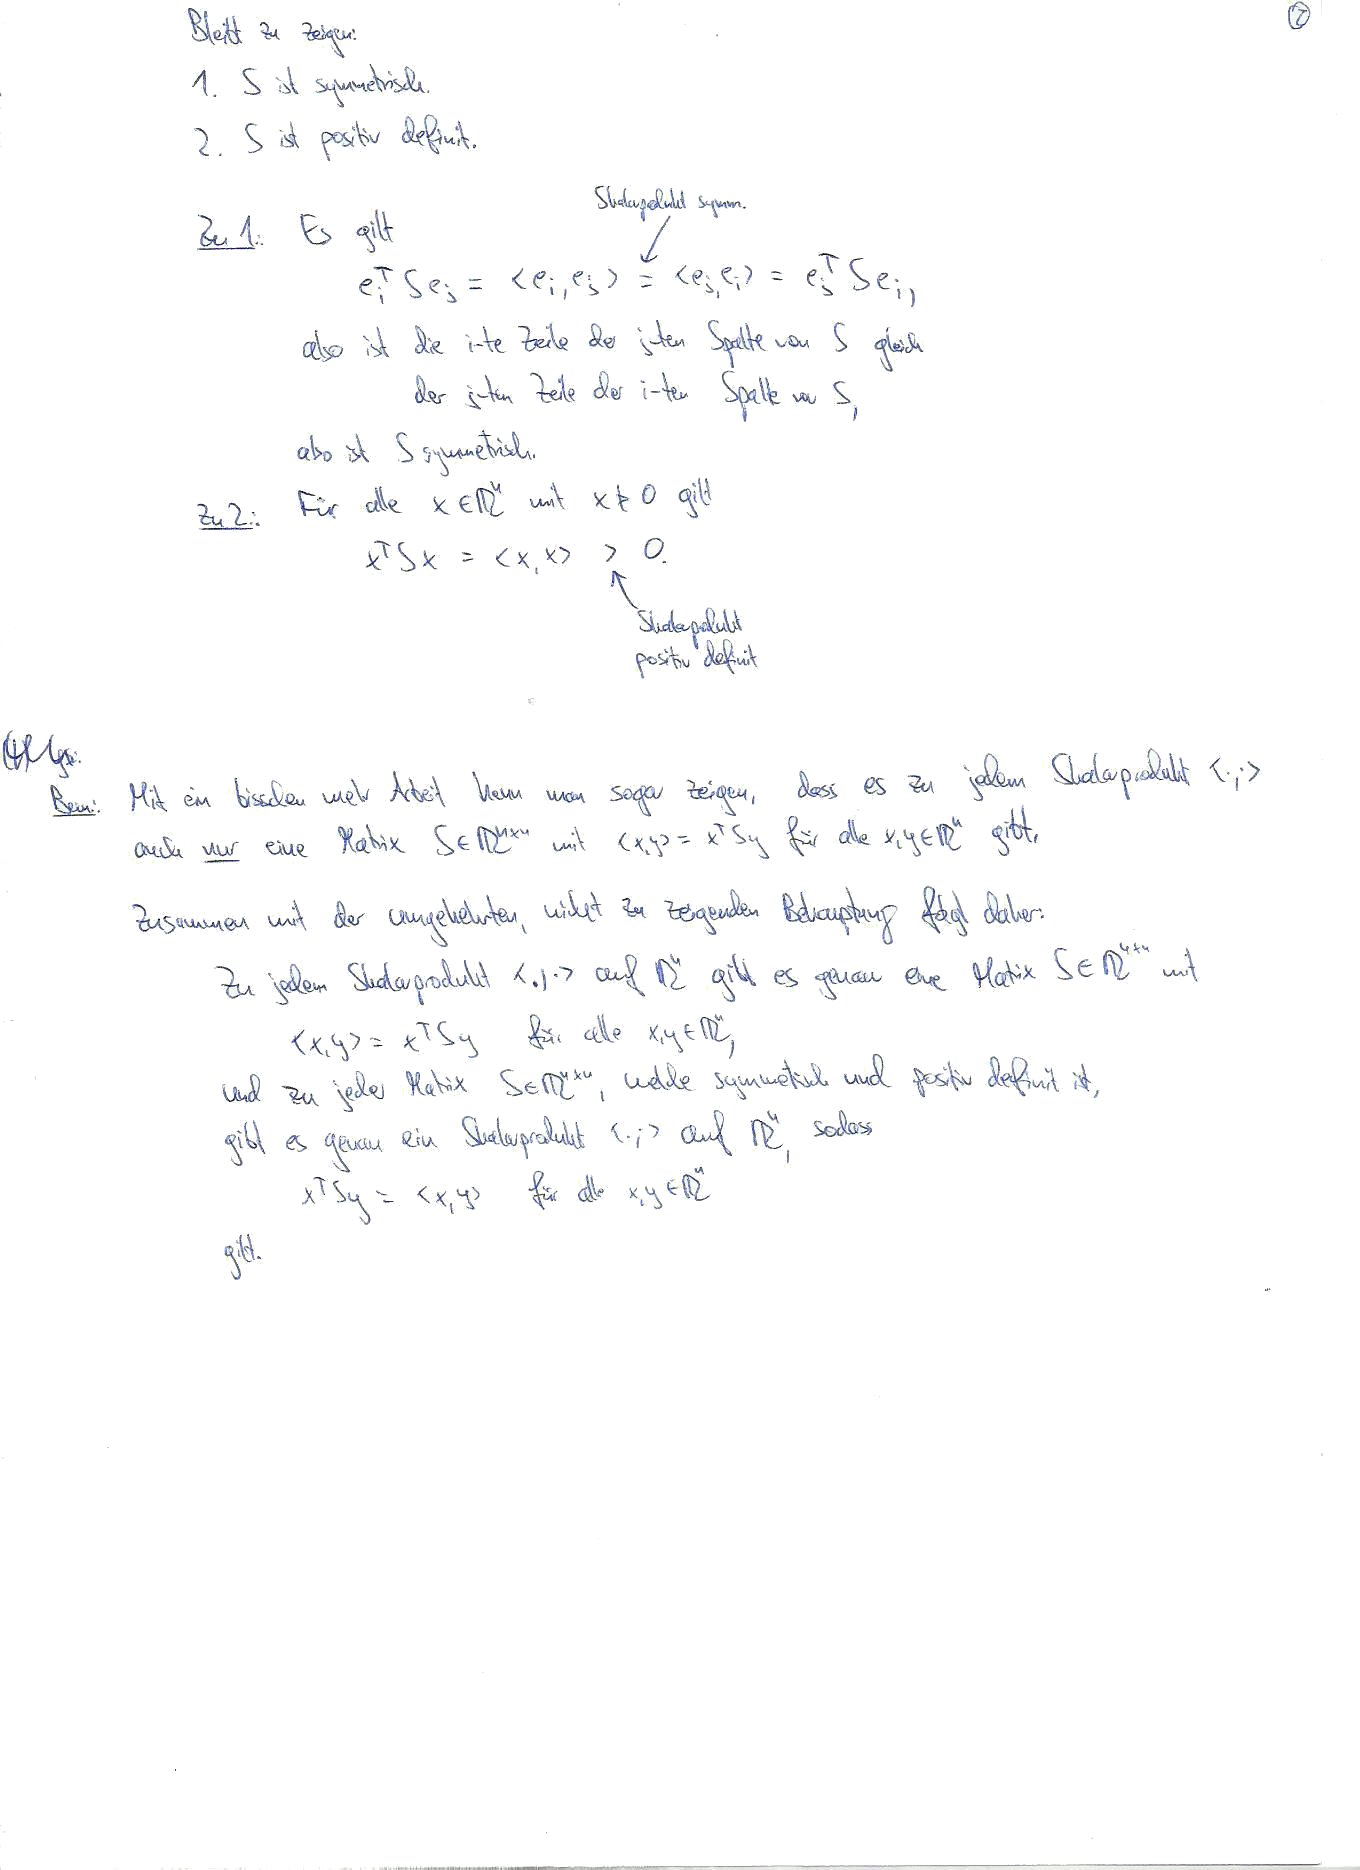 ②
Bleibt zu zeigen:
1. S ist symmetrisch.
2. S ist positiv definit.
Skalarprodukt symm.
Zu 1.: Es gilt
eᵢᵀ S eⱼ = <eᵢ, eⱼ> = <eⱼ, eᵢ> = eⱼᵀ S eᵢ,
also ist die i-te Zeile der j-ten Spalte von S gleich
der j-ten Zeile der i-ten Spalte von S,
also ist S symmetrisch.
Zu 2.: Für alle x ∈ ℝⁿ mit x ≠ 0 gilt
xᵀSx = <x, x> > 0.
Skalarprodukt
positiv definit
Bem.: Mit ein bisschen mehr Arbeit kann man sogar zeigen, dass es zu jedem Skalarprodukt <·,·>
auch nur eine Matrix S ∈ ℝⁿˣⁿ mit <x,y> = xᵀSy für alle x,y ∈ ℝⁿ gibt.
Zusammen mit der umgekehrten, nicht zu zeigenden Behauptung folgt daher:
Zu jedem Skalarprodukt <·,·> auf ℝⁿ gibt es genau eine Matrix S ∈ ℝⁿˣⁿ mit
<x,y> = xᵀSy für alle x,y ∈ ℝⁿ,
und zu jeder Matrix S ∈ ℝⁿˣⁿ, welche symmetrisch und positiv definit ist,
gibt es genau ein Skalarprodukt <·,·> auf ℝⁿ, sodass
xᵀSy = <x,y> für alle x,y ∈ ℝⁿ
gilt.